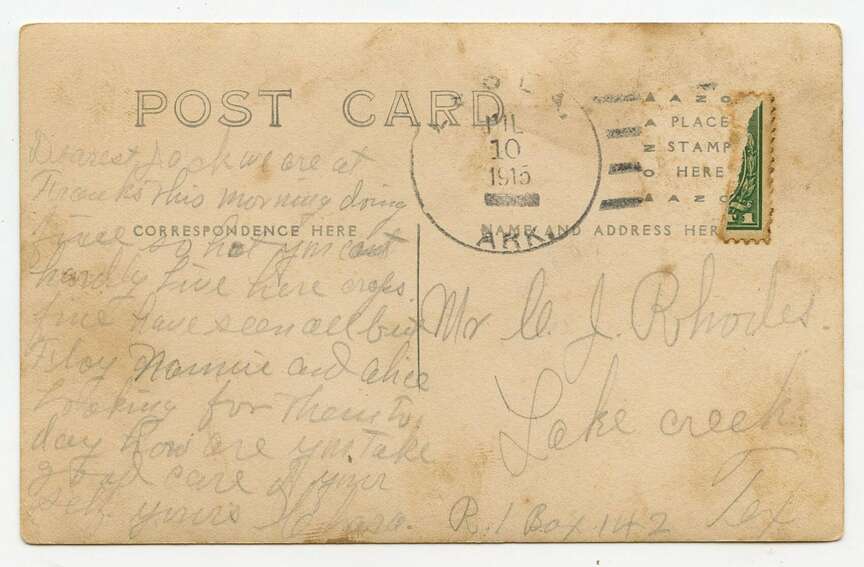 POST CARD
Dearest Jack we are at
Franks this morning doing
fine so hot you cant
hardly live here crops
fine have seen all but
Floy Nannie and alice
Looking for them to
day how are you take
good care of your
self. yours Clara.
CORRESPONDENCE HERE
JUL
10
1915
ARK.
AZO
PLACE
STAMP
HERE
AZO
1
NAME AND ADDRESS HERE
Mr C. J. Rhodes.
Lake creek
Tex
R. 1 Box 142